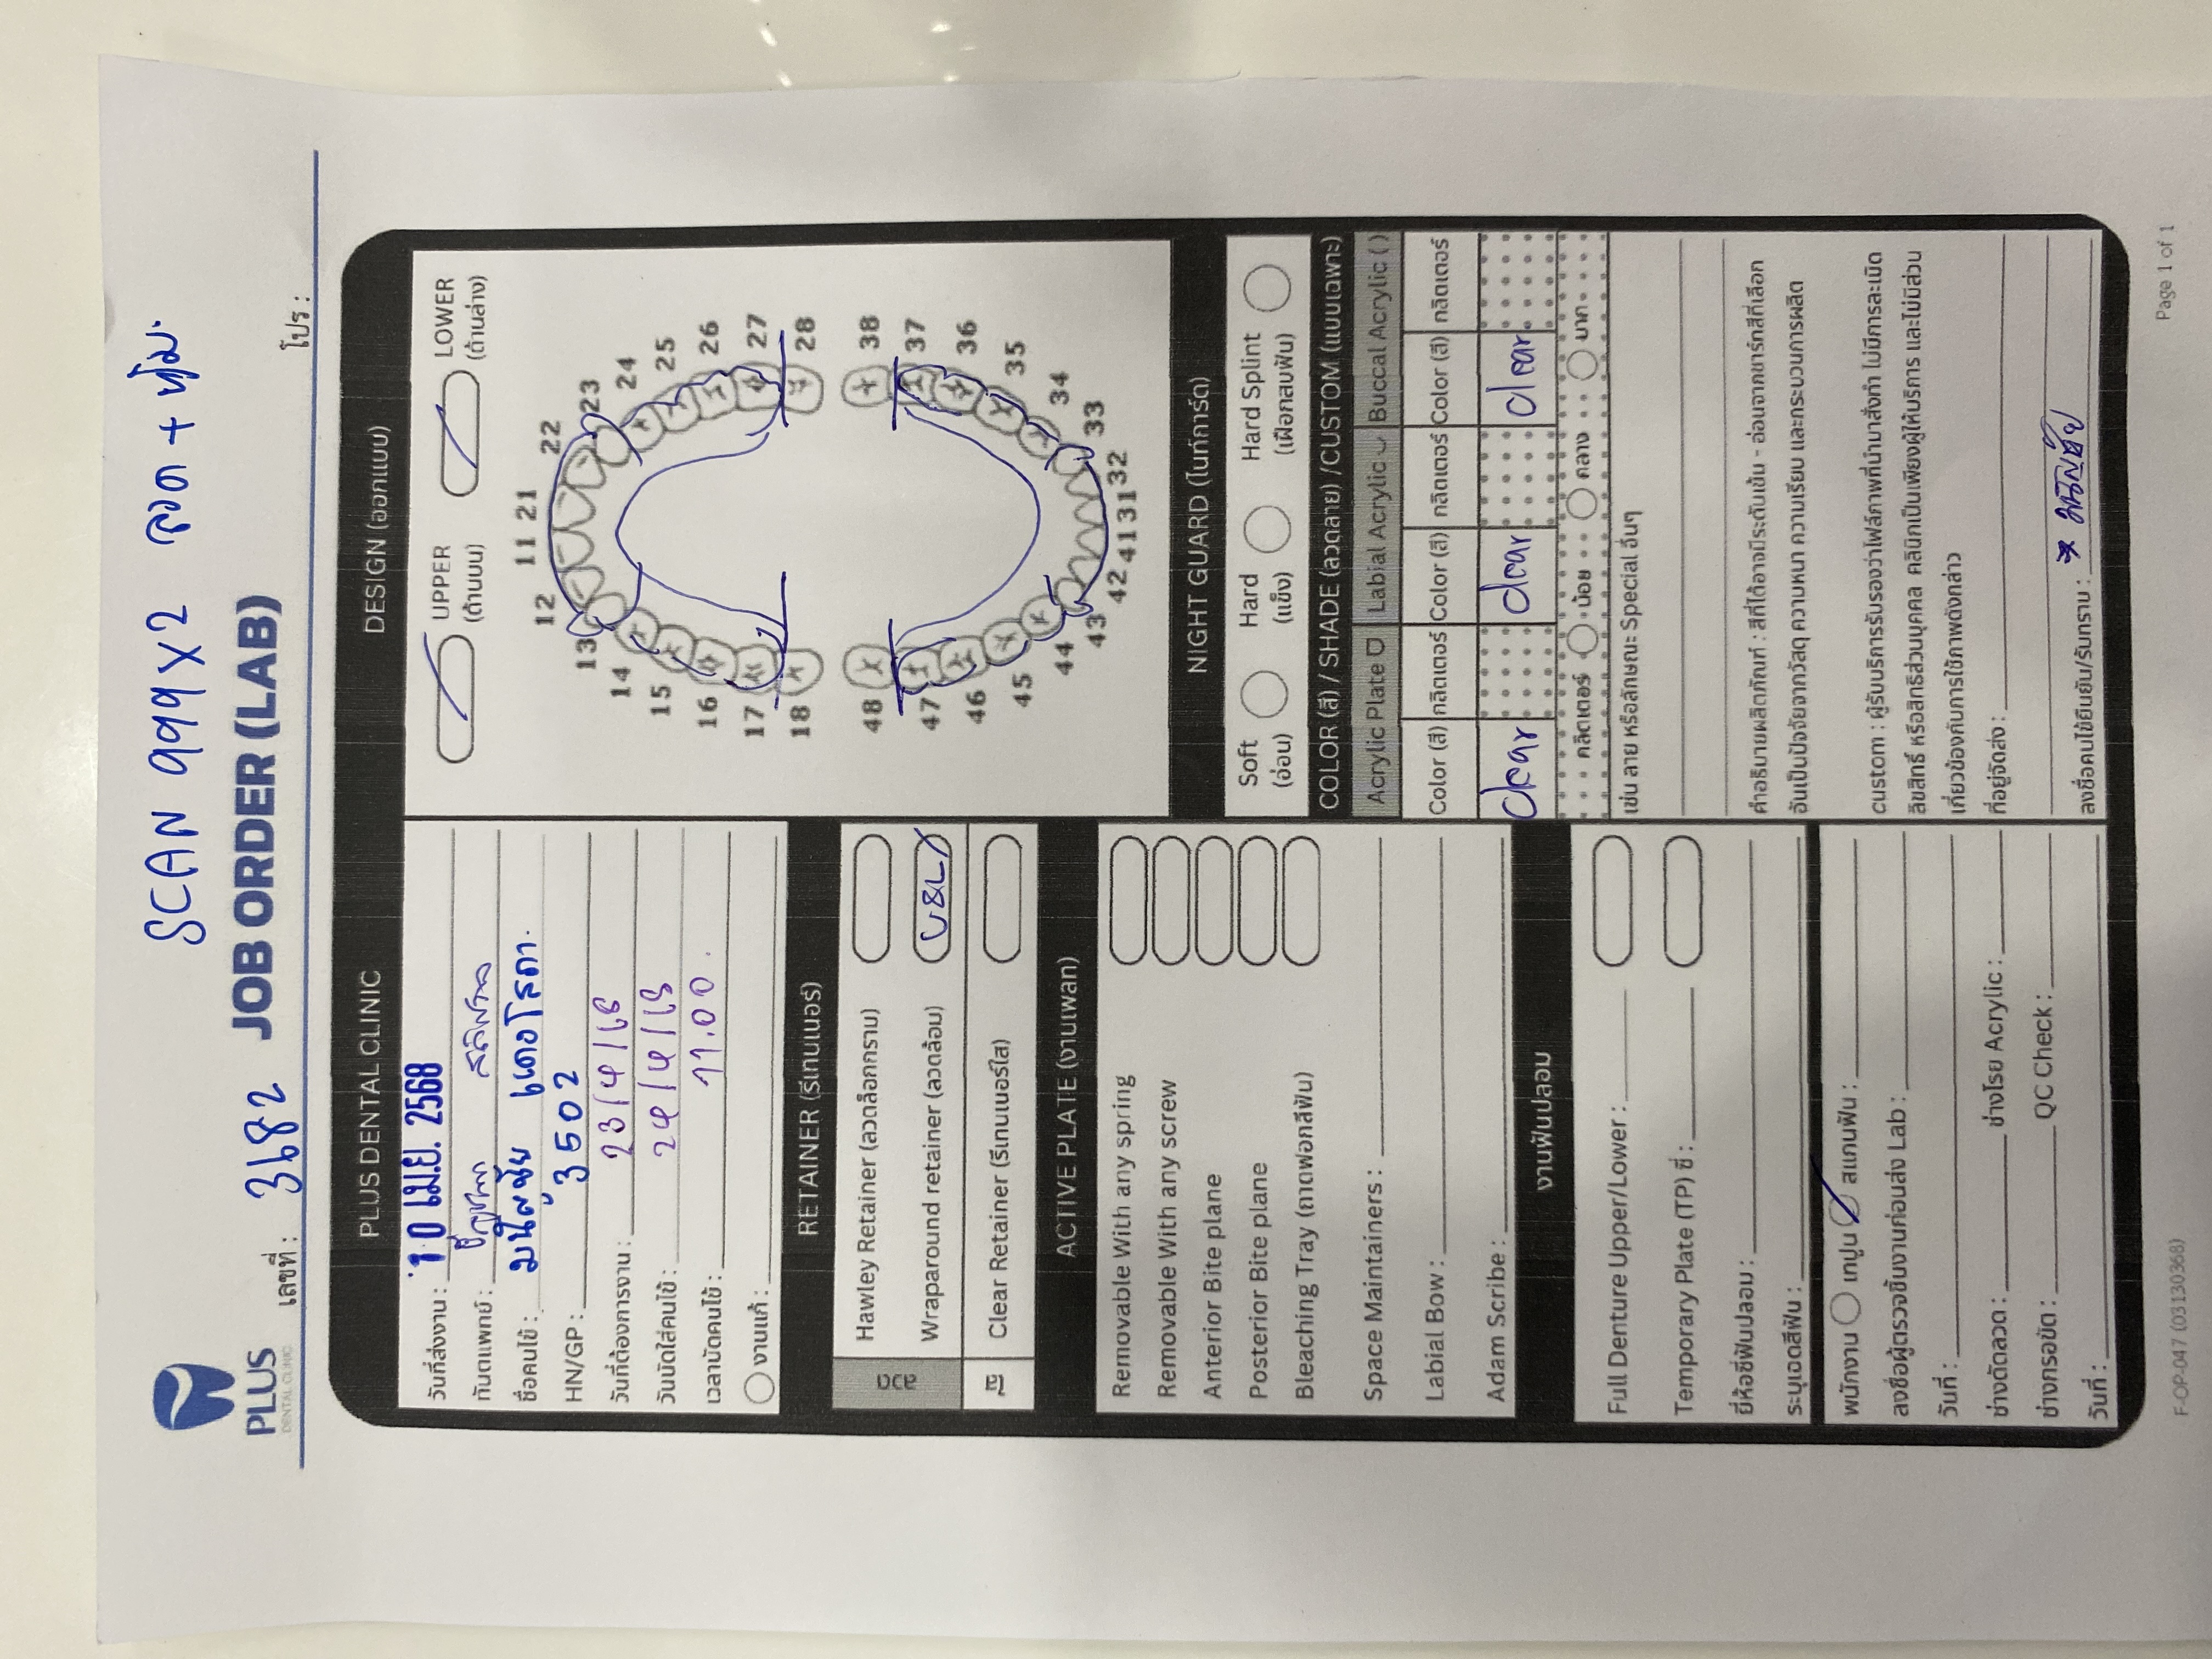 SCAN 999 X 2 ลวด + หุ้ม.
PLUS
DENTAL CLINIC
เลขที่ : 3682
JOB ORDER (LAB)
โปร :
PLUS DENTAL CLINIC
วันที่ส่งงาน : 10 เม.ย. 2568
ทันตแพทย์ :
ชื่อคนไข้ :
HN/GP : 3502
วันที่ต้องการงาน : 23/4/68
วันนัดใส่คนไข้ : 24/4/68
เวลานัดคนไข้ : 11.00.
งานแก้ :
RETAINER (รีเทนเนอร์)
ลวด
Hawley Retainer (ลวดล็อกกราม)
Wraparound retainer (ลวดล้อม)
ใส
Clear Retainer (รีเทนเนอร์ใส)
ACTIVE PLATE (งานเพลท)
Removable With any spring
Removable With any screw
Anterior Bite plane
Posterior Bite plane
Bleaching Tray (ถาดฟอกสีฟัน)
Space Maintainers :
Labial Bow :
Adam Scribe :
งานฟันปลอม
Full Denture Upper/Lower :
Temporary Plate (TP) ซี่ :
ยี่ห้อซี่ฟันปลอม :
ระบุเฉดสีฟัน :
พนักงาน เทปูน สแกนฟัน :
ลงชื่อผู้ตรวจชิ้นงานก่อนส่ง Lab :
วันที่ :
ช่างดัดลวด : ช่างโรย Acrylic :
ช่างกรอขัด : QC Check :
วันที่ :
DESIGN (ออกแบบ)
UPPER LOWER
(ด้านบน) (ด้านล่าง)
11 21
12 22
13 23
14 24
15 25
16 26
17 27
18 28
48 38
47 37
46 36
45 35
44 34
43 33
42 41 31 32
NIGHT GUARD (ไนท์การ์ด)
Soft Hard Hard Splint
(อ่อน) (แข็ง) (เฝือกสบฟัน)
COLOR (สี) / SHADE (ลวดลาย) /CUSTOM (แบบเฉพาะ)
Acrylic Plate Labial Acrylic Buccal Acrylic ( )
Color (สี) กลิตเตอร์ Color (สี) กลิตเตอร์ Color (สี) กลิตเตอร์
clear clear clear
กลิตเตอร์ น้อย กลาง มาก
เช่น ลาย หรือลักษณะ Special อื่นๆ
คำอธิบายผลิตภัณฑ์ : สีที่ได้อาจมีระดับเข้ม - อ่อนจากชาร์ทสีที่เลือก
อันเป็นปัจจัยจากวัสดุ ความหนา ความเรียบ และกระบวนการผลิต
custom : ผู้รับบริการรับรองว่าไฟล์ภาพที่นำมาสั่งทำ ไม่มีการละเมิด
ลิขสิทธิ์ หรือสิทธิส่วนบุคคล คลินิกเป็นเพียงผู้ให้บริการ และไม่มีส่วน
เกี่ยวข้องกับการใช้ภาพดังกล่าว
ที่อยู่จัดส่ง :
ลงชื่อคนไข้ยืนยัน/รับทราบ :
F-OP-047 (03130368)
Page 1 of 1